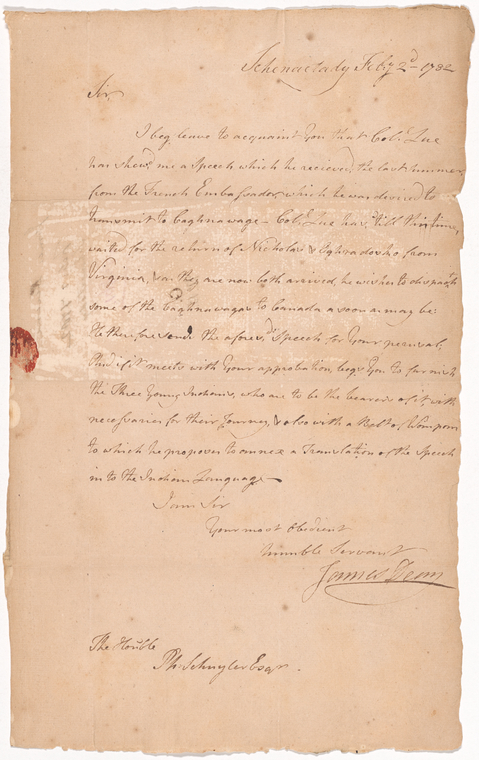 Schenectady Feby 2d 1782
Sir
I beg leave to acquaint You that Colo. Lue
has shewd me a Speech which he recieved the last summer
from the French Embassador, which he was desired to
transmit to Caghnawage - Colo. Lue has 'till this time,
waited for the return of Nicholas & from
Virginia, & as they are now both arrived, he wishes to dispatch
some of the Caghnawagas to Canada as soon as may be:
He therefore sends the aforesd. Speech for Your perusal;
And if it meets with Your approbation, begs You to furnish
the Three Young Indians, who are to be the bearers of it with
necessaries for their Journey, & also with a Belt of Wampom
to which he proposes to annex a Translation of the Speech
in to the Indian Language -
I am Sir
Your most Obedient
Humble Servant
James Dean
The Honble
Ph: Schuyler Esqr.